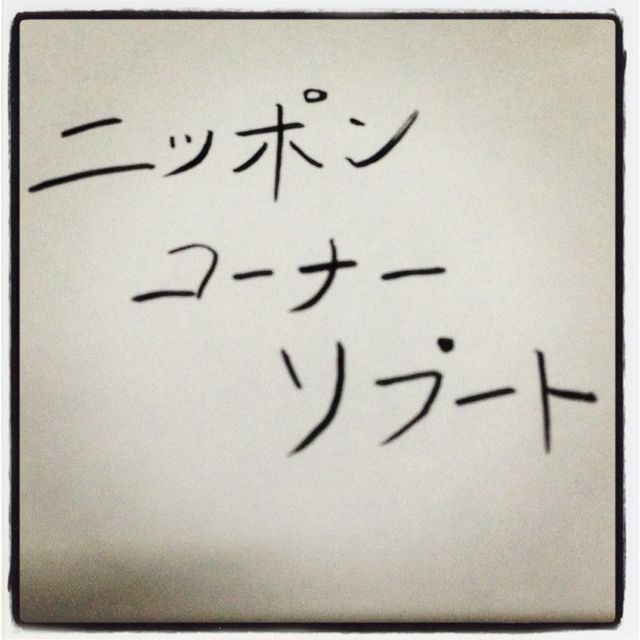 ニッポン
コーナー
ソプート